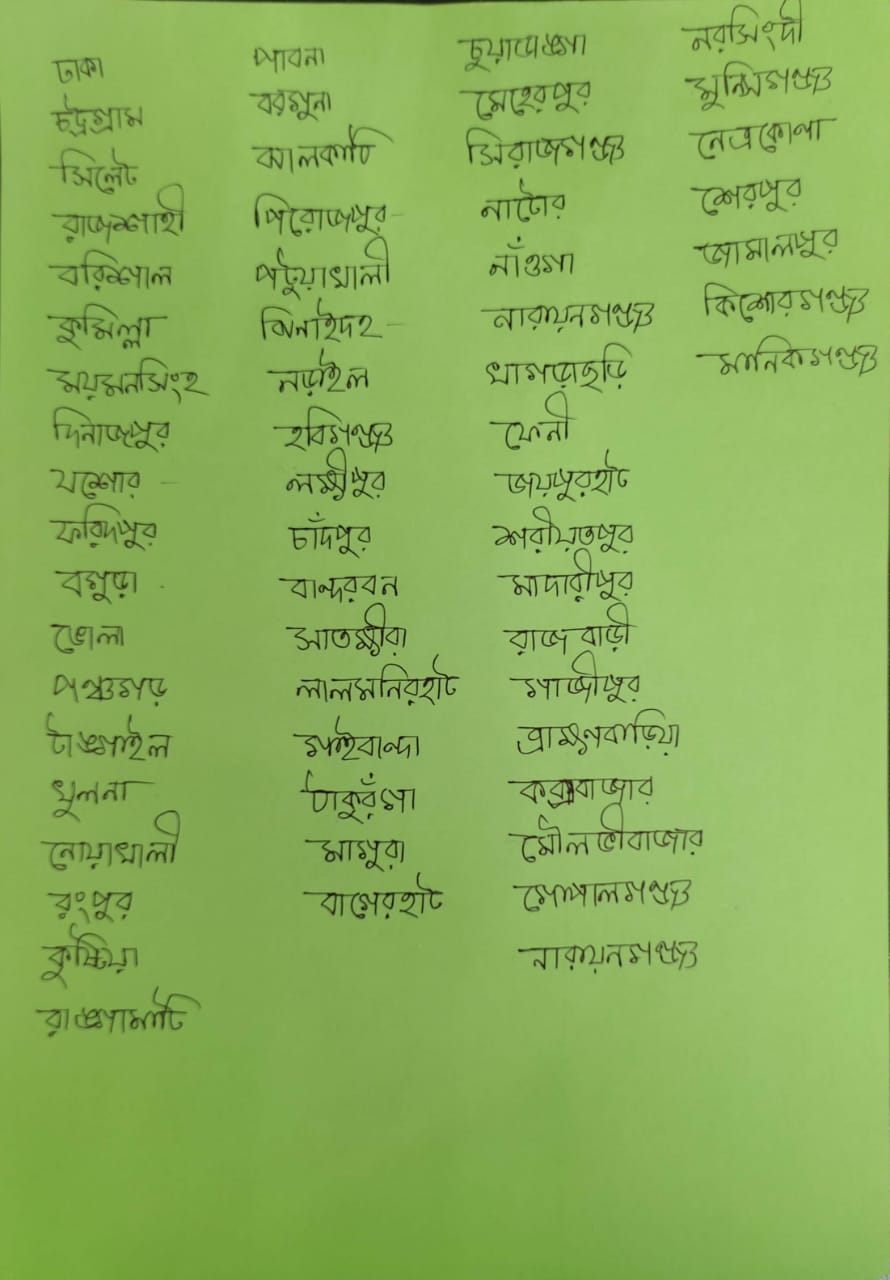 ঢাকা
চট্রগ্রাম
সিলেট
রাজশাহী
বরিশাল
কুমিল্লা
ময়মনসিংহ
দিনাজপুর
যশোর
ফরিদপুর
বগুড়া
ভোলা
পঞ্চগড়
টাঙ্গাইল
খুলনা
নোয়াখালী
রংপুর
কুষ্টিয়া
রাঙ্গামাটি
পাবনা
বরগুনা
ঝালকাটি
পিরোজপুর
পটুয়াখালী
ঝিনাইদহ
নড়াইল
হবিগঞ্জ
লক্ষ্মীপুর
চাঁদপুর
বান্দরবন
সাতক্ষীরা
লালমনিরহাট
গাইবান্দা
ঠাকুরঁগা
মাগুরা
বাগেরহাট
চুয়াডাঙ্গা
মেহেরপুর
সিরাজগঞ্জ
নাটোর
নাঁওগা
নারায়নগঞ্জ
খাগড়াছড়ি
ফেনী
জয়পুরহাট
শরীয়তপুর
মাদারীপুর
রাজবাড়ী
গাজীপুর
ব্রাহ্মণবাড়িয়া
কক্সবাজার
মৌলভীবাজার
গোপালগঞ্জ
নারায়নগঞ্জ
নরসিংদী
মুন্সিগঞ্জ
নেত্রকোনা
শেরপুর
জামালপুর
কিশোরগঞ্জ
মানিকগঞ্জ